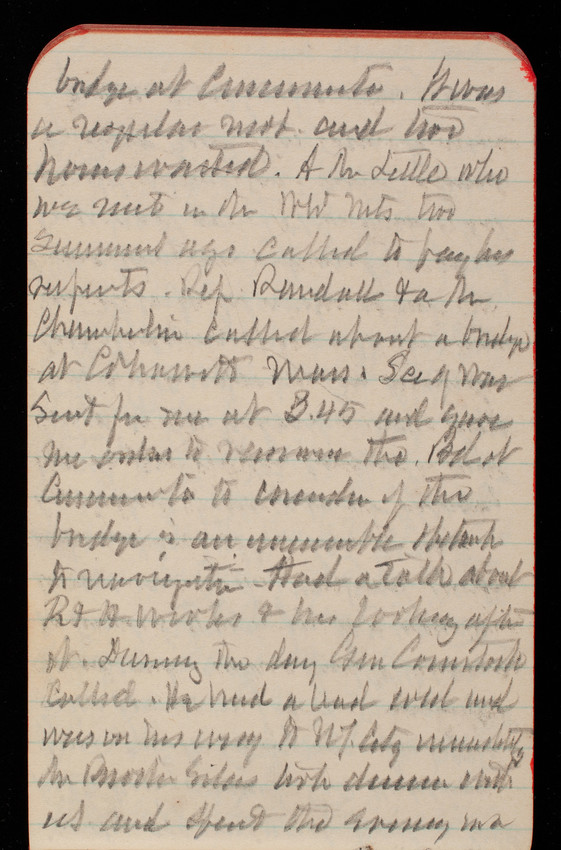 bridge at Cincinnati. It was
a regular mob and two
hours wasted. A Mr Little who
we met in the Wh Mts two
summers ago called to pay his
respects. Rep Randall & a Mr
Chamberlin called about a bridge
at Cohasset Mass. Secy War
sent for me at 3.45 and gave
me orders to reconvene the Bd at
Cincinnati to consider if the
bridge is an unreasonable obstruction
to navigation. Had a talk about
R & H works & his looking after
it. During the day Gen Comstock
called. He had a bad cold and
was on his way to N.Y. City
Mr took dinner with
us and spent the evening